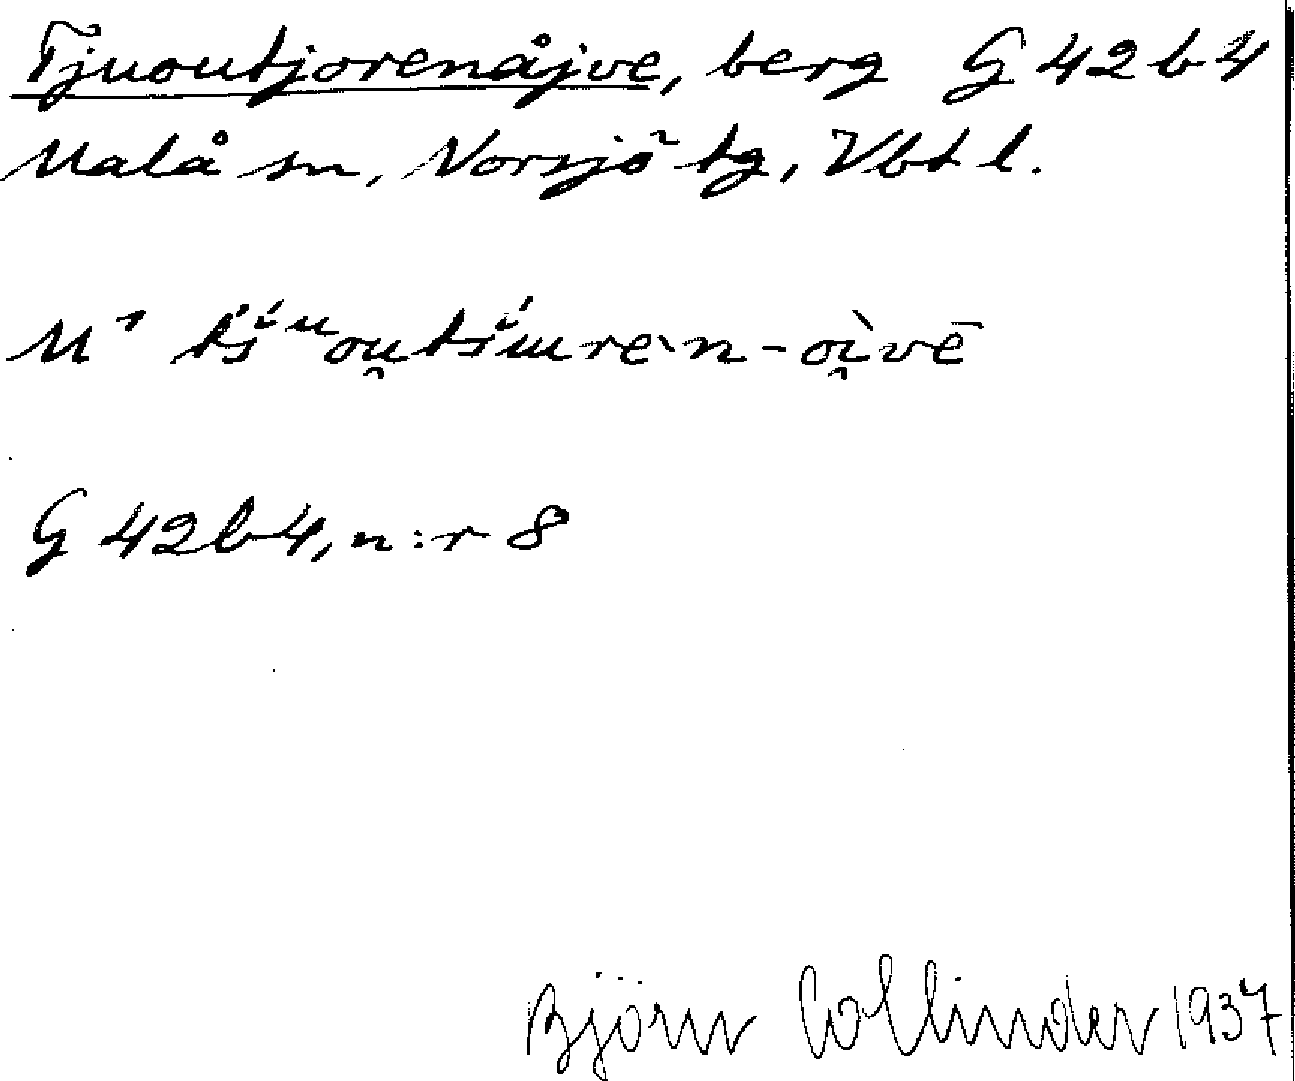 Tjuoutjorenåjve, berg G 42 b 4
Malå sn, Norsjö tg, Vbt l.
M¹ t́śⁱᵘou̯tśⁱɯre`n-oì̯vē
G 42 b 4, n:r 8
Björn Collinder 1937